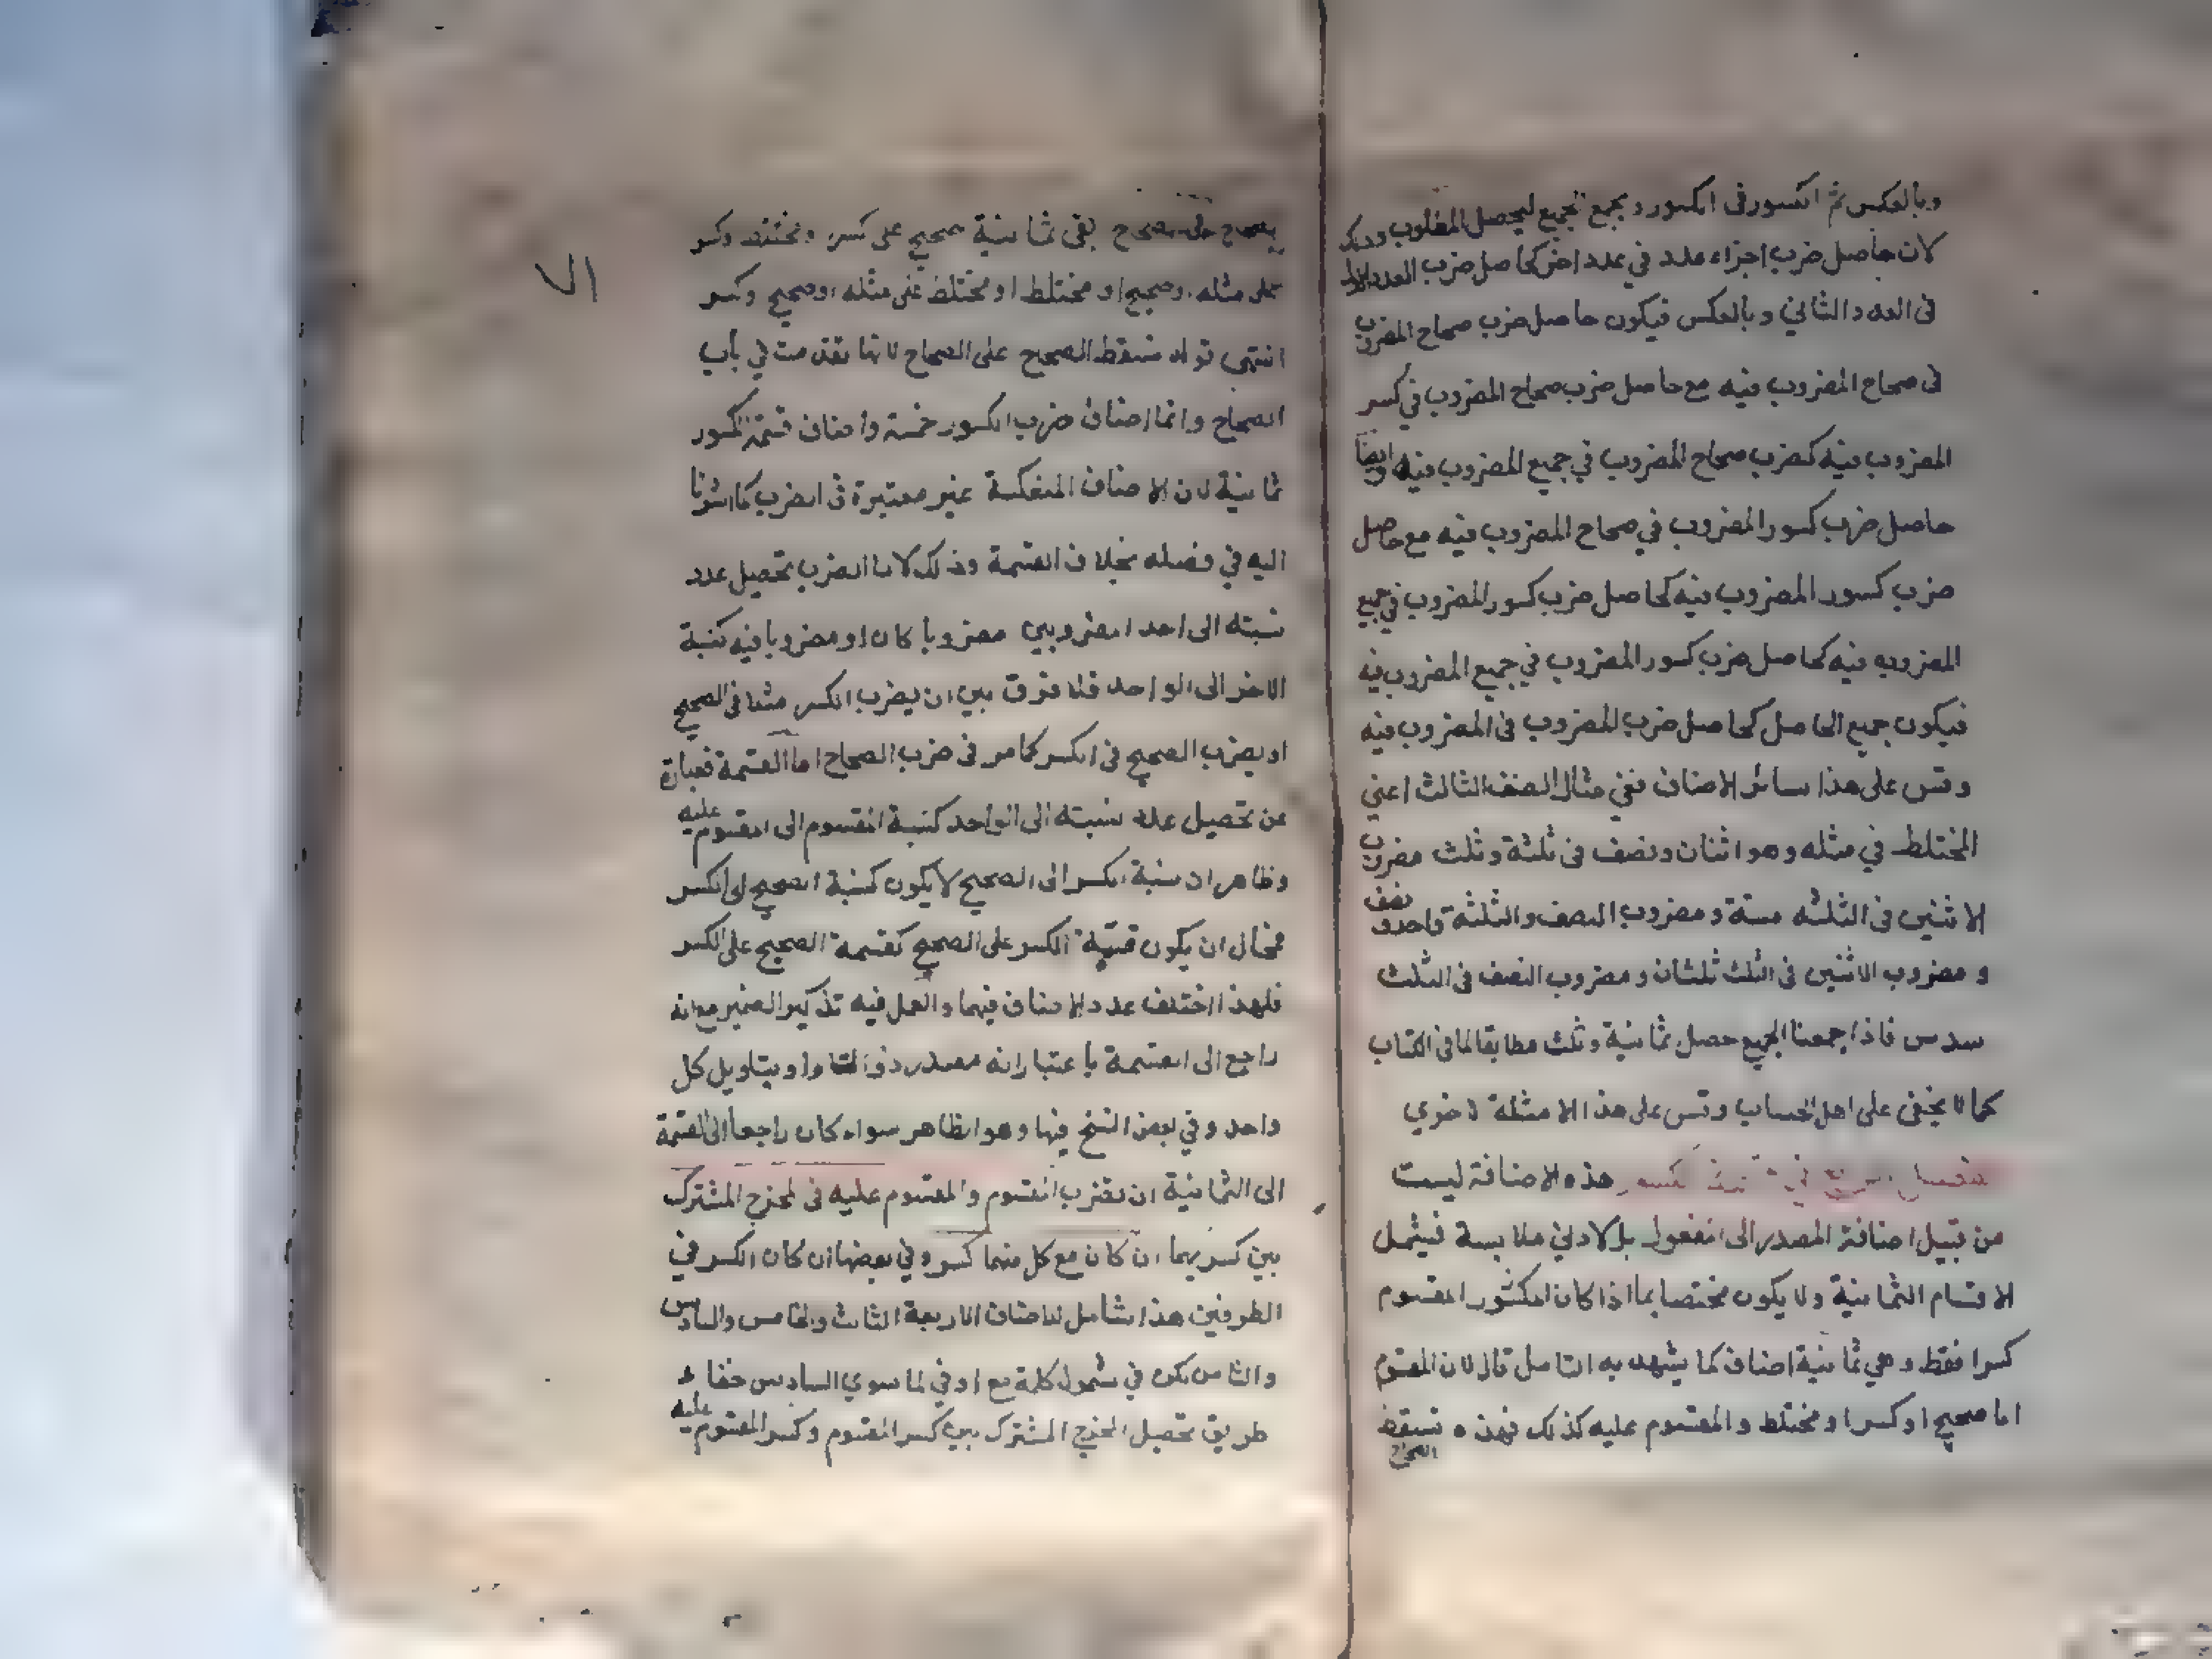 وبالعكس ثم الكسور فى الكسور ويجمع الجميع ليحصل المطلوب وذلك
لان حاصل ضرب اجزاء عدد في عدد اخر كحاصل ضرب العدد الاول
فى العدد الثاني وبالعكس فيكون حاصل ضرب صحاح المضروب
فى صحاح المضروب فيه مع حاصل ضرب صحاح المضروب في كسر
المضروب فيه كضرب صحاح المضروب في جميع المضروب فيه وايضا
حاصل ضرب كسور المضروب في صحاح المضروب فيه مع حاصل
ضرب كسور المضروب فيه كحاصل ضرب كسور المضروب في جميع
المضروب فيه كحاصل ضرب كسور المضروب في جميع المضروب فيه
فيكون جميع الحاصل كحاصل ضرب المضروب فى المضروب فيه
وقس على هذا سائر الاصناف ففي مثال الصنف الثالث اعني
المختلط في مثله وهو اثنان ونصف فى ثلثة وثلث مضروب
الاثنين فى الثلثه ستة ومضروب النصف والثلثة واحد ونصف
و مضروب الاثنين فى الثلث ثلثان ومضروب النصف فى الثلث
سدس فاذا جمعنا الجميع حصل ثمانية وثلث مطابقا لما فى الكتاب
كما لا يخفى على اهل الحساب وقس على هذا الامثلة لاخري
الكسور هذه الاضافة ليست
من قبيل اضافة المصدر الى المفعول بل لادني ملابسة فيشمل
الاقسام الثمانية ولا يكون مختصا بما اذا كان المكسور المقسوم
كسرا فقط وهي ثمانية اصناف كما يشهد به التامل قال لان المقسوم
اما صحيح او كسر او مختلط والمقسوم عليه كذلك فهذه تسقط
الصحاح
٧١
الصحاح على الصحاح بقى ثمانية صحيح على كسر ومختلط وكسر
على مثله وصحيح او مختلط او مختلط على مثله وصحيح وكسر
انتهى قوله فسقط الصحيح على الصحاح لانها تقدمت في باب
الصحاح وانما اصناف ضرب الكسور خمسة واصناف قسمة الكسور
ثمانية لان الاصناف المنعكسة غير معتبرة فى الضرب كما اشرنا
اليه في فصله بخلاف القسمة وذلك لان الضرب تحصيل عدد
نسبته الى احد المضروبين مضروبا كان او مضروبا فيه كنسبة
الاخر الى الواحد فلا فرق بين ان يضرب الكسر مثلا فى الصحيح
او يضرب الصحيح فى الكسر كما مر فى ضرب الصحاح اما القسمة فعبارة
عن تحصيل عدد نسبته الى الواحد كنسبة المقسوم الى المقسوم عليه
وظاهر ان نسبة الكسر الى الصحيح لا يكون كنسبة الصحيح الى الكسر
فحال ان يكون قسمة الكسر على الصحيح كقسمة الصحيح على الكسر
فلهذا اختلف عدد الاصناف فيهما والعمل فيه تذكير الضمير مع انه
راجع الى القسمة باعتبار انه مصدر ذو التاء او بتاويل كل
واحد وفي بعض النسخ فيها وهو الظاهر سواء كان راجعا الى القسمة
الى الثمانية ان تضرب المقسوم والمقسوم عليه فى المخرج المشترك
بين كسريهما ان كان مع كل منهما كسر وفي بعضها ان كان الكسر في
الطرفين هذا شامل للاصناف الاربعة الثالث والخامس والسادس
والثامن لكن في شمول كلمة مع او في لما سوي السادس خفاء
طريق تحصيل المخرج المشترك بين كسر المقسوم وكسر المقسوم عليه